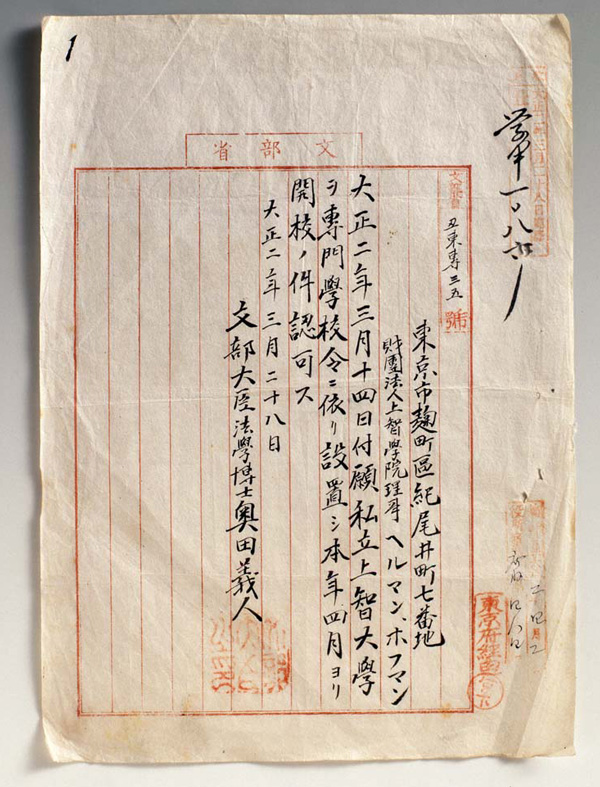 文部省
文部省 丑東専三五 號
東京市麹町區紀尾井町七番地
財團法人上智學院理事 ヘルマン、ホフマン
大正二年三月十四日付願私立上智大學
ヲ專門學校令ニ依リ設置シ本年四月ヨリ
開校ノ件認可ス
大正二年三月二十八日
文部大臣法學博士奥田義人
東京府經由